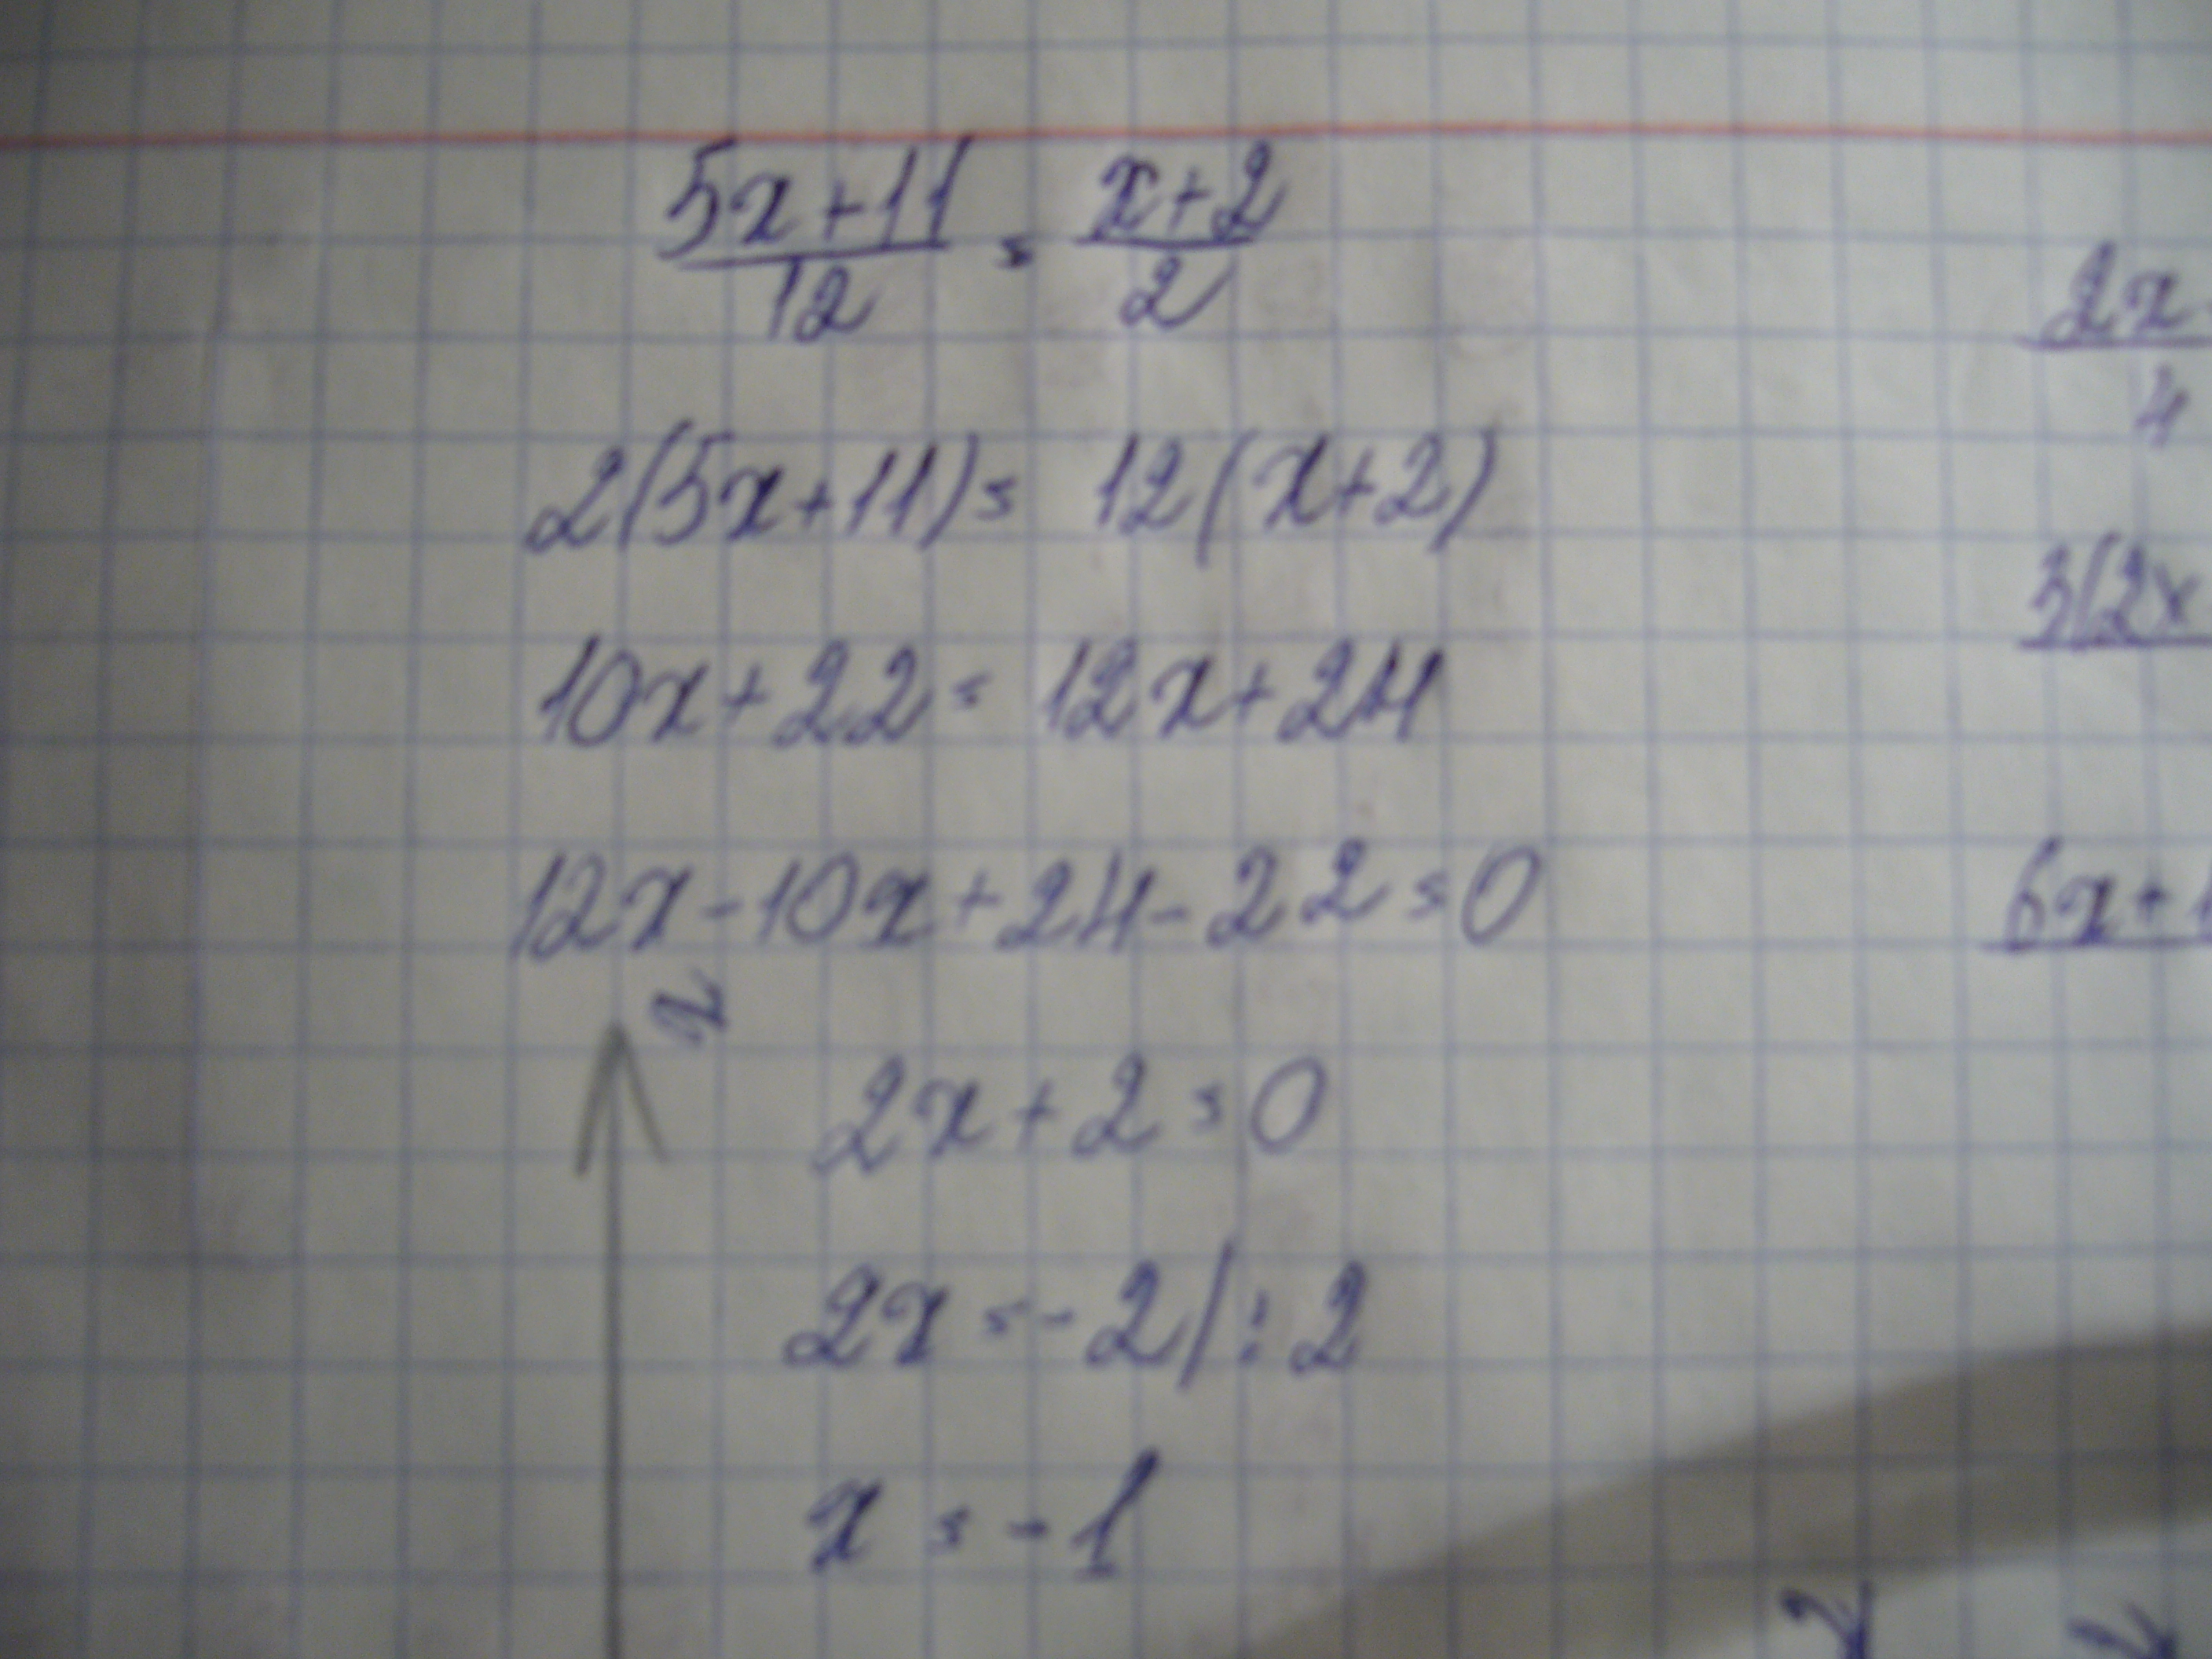 (5x+11)/12 = (x+2)/2
2(5x+11) = 12(x+2)
10x+22 = 12x+24
12x-10x+24-22=0
x
2x+2=0
2x=-2/:2
x=-1
2x
4
3(2x
6x+1